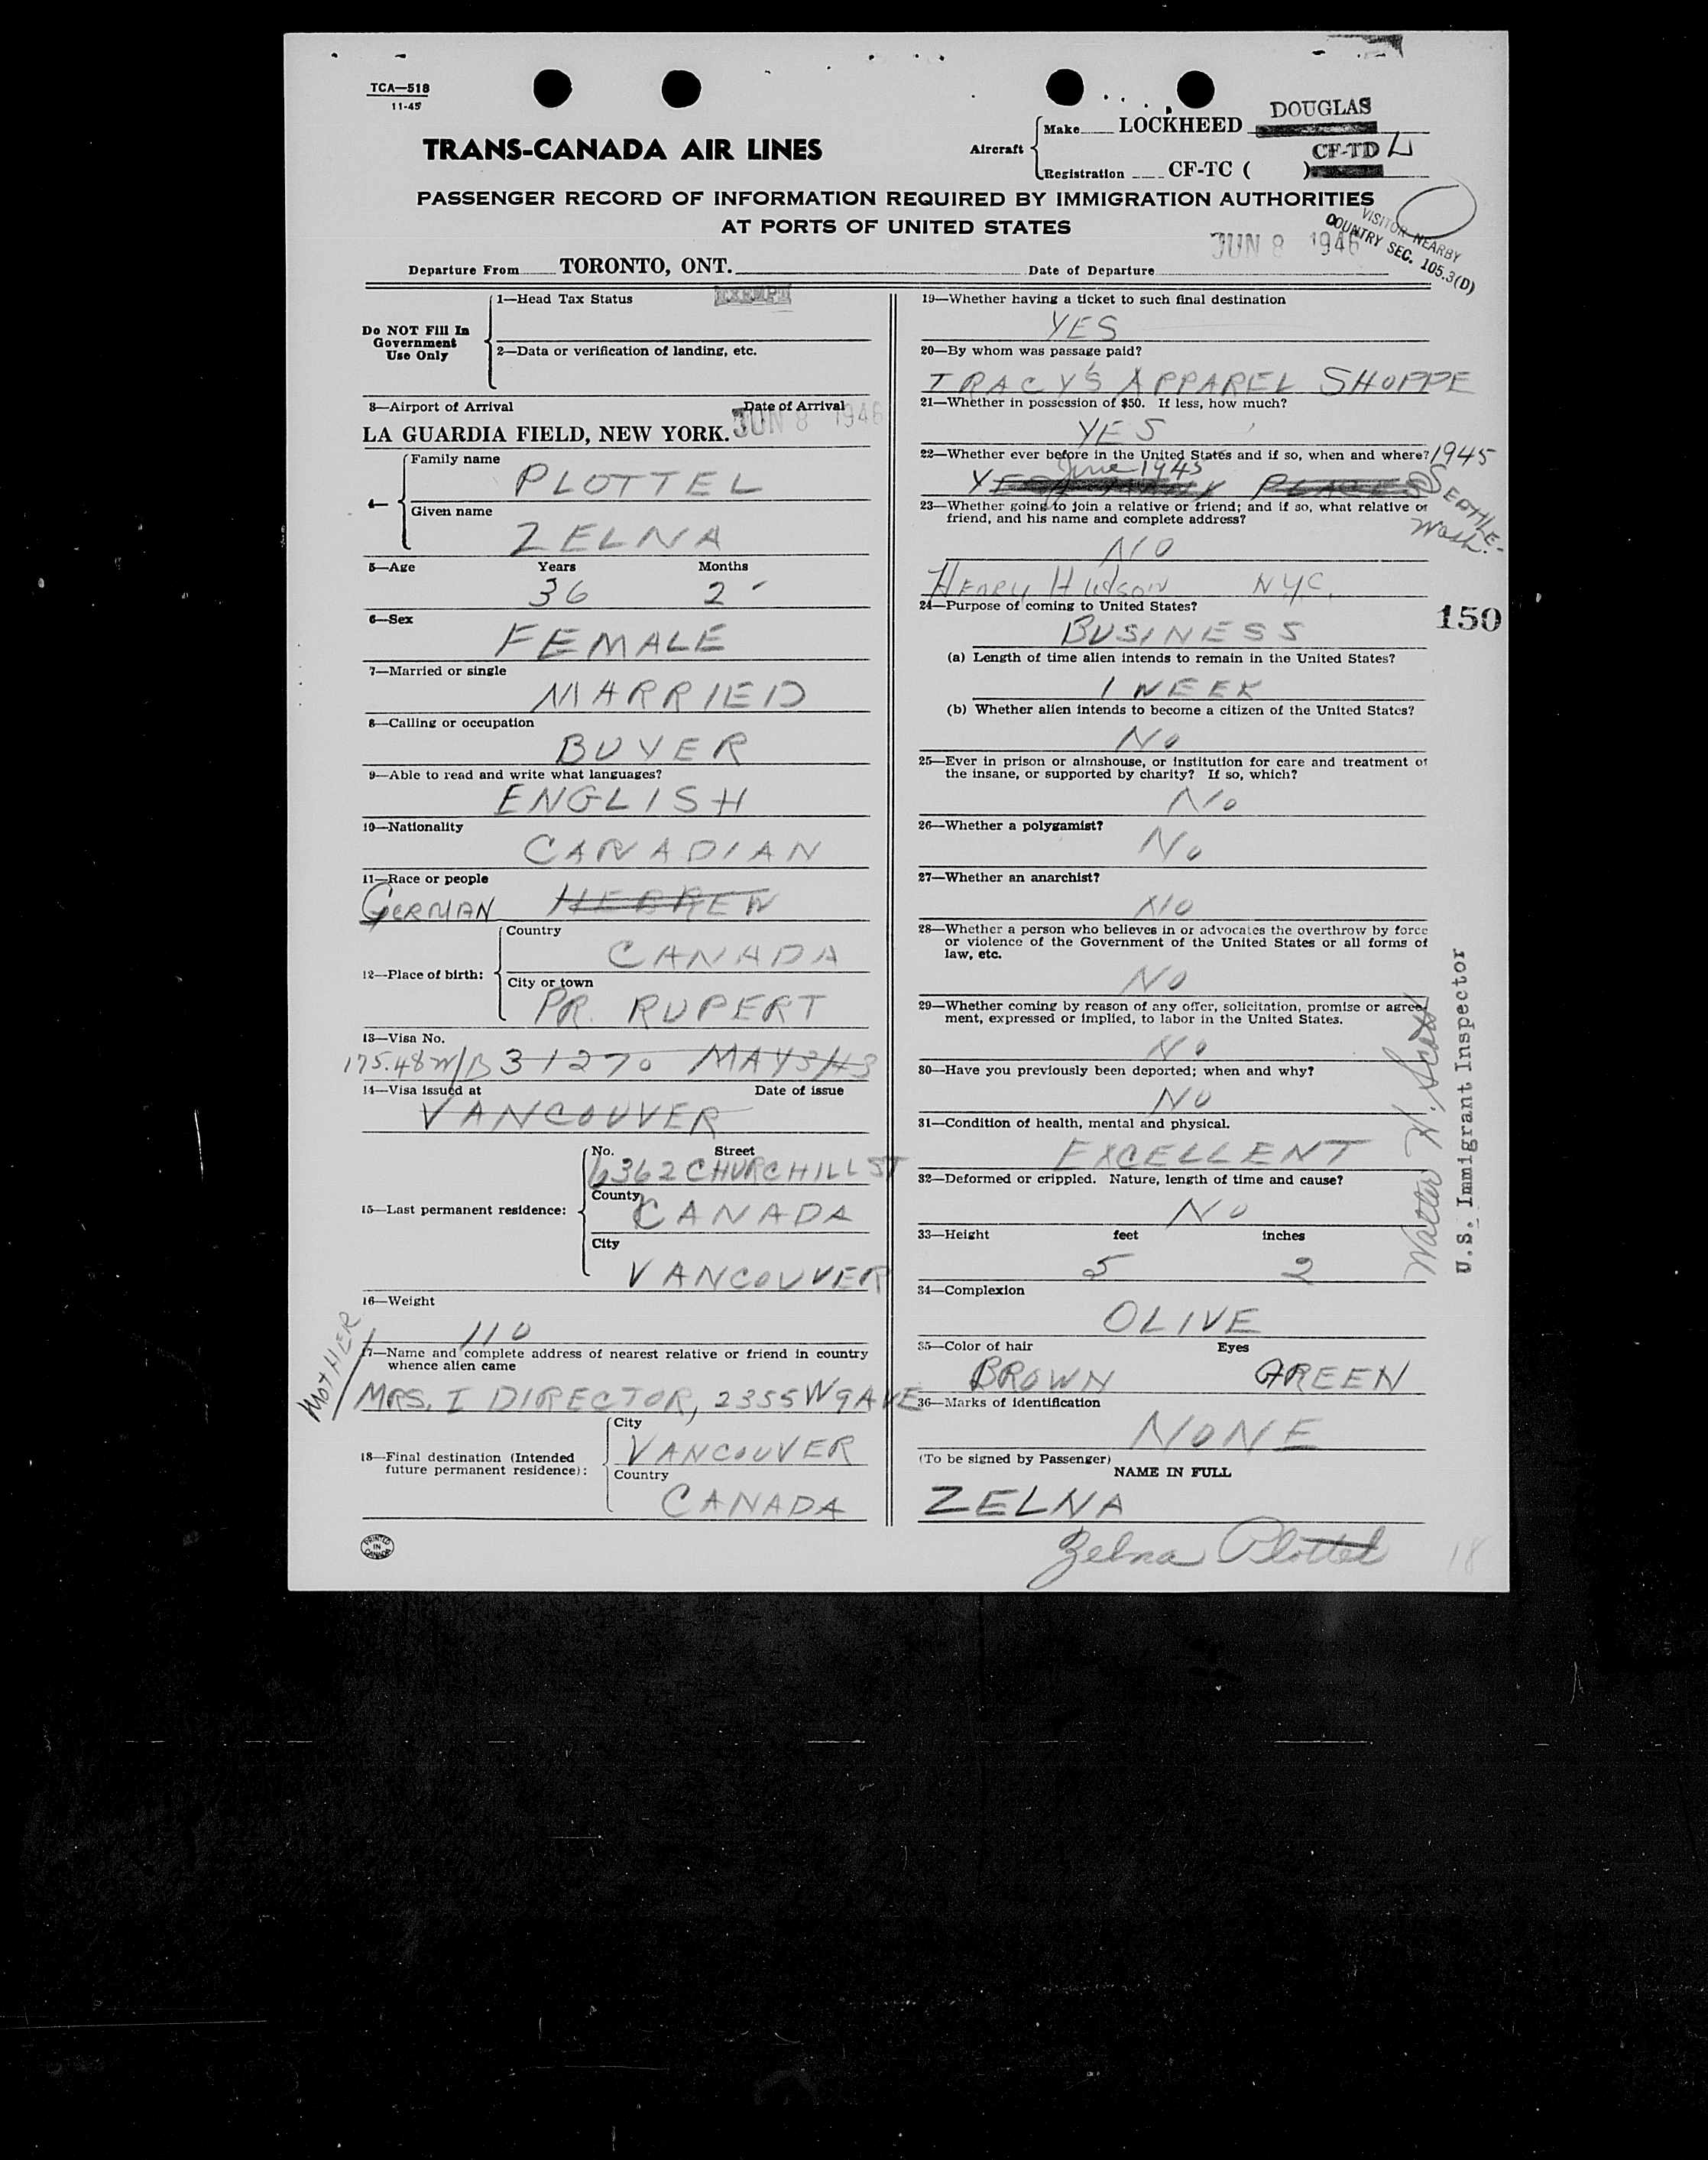 TCA—518
11-45
TRANS-CANADA AIR LINES
Aircraft
Make LOCKHEED DOUGLAS
Registration CF-TC ( ) CF-TD L
PASSENGER RECORD OF INFORMATION REQUIRED BY IMMIGRATION AUTHORITIES
AT PORTS OF UNITED STATES
VISITOR NEARBY
COUNTRY SEC. 105.3(D)
Departure From TORONTO, ONT. Date of Departure JUN 8 1946
Do NOT Fill In
Government
Use Only
1—Head Tax Status EXEMPT
2—Data or verification of landing, etc.
3—Airport of Arrival Date of Arrival
LA GUARDIA FIELD, NEW YORK. JUN 8 1946
4—
Family name
PLOTTEL
Given name
ZELNA
5—Age Years Months
36 2
6—Sex
FEMALE
7—Married or single
MARRIED
8—Calling or occupation
BUYER
9—Able to read and write what languages?
ENGLISH
10—Nationality
CANADIAN
11—Race or people
GERMAN HEBREW
12—Place of birth:
Country
CANADA
City or town
PR. RUPERT
13—Visa No.
175.48 W/B 31270 MAY 3/43
14—Visa issued at Date of issue
VANCOUVER
15—Last permanent residence:
No. Street
6362 CHURCHILL ST
County
CANADA
City
VANCOUVER
16—Weight
110
17—Name and complete address of nearest relative or friend in country
whence alien came
MOTHER
MRS. I DIRECTOR, 2355 W 9 AVE
18—Final destination (Intended
future permanent residence):
City
VANCOUVER
Country
CANADA
PRINTED
IN
CANADA
19—Whether having a ticket to such final destination
YES
20—By whom was passage paid?
TRACY'S APPAREL SHOPPE
21—Whether in possession of $50. If less, how much?
YES
22—Whether ever before in the United States and if so, when and where? 1945
June 1945
YES MANY PLACES SEATTLE-
Wash.
23—Whether going to join a relative or friend; and if so, what relative or
friend, and his name and complete address?
NO
HENRY HUDSON NYC.
24—Purpose of coming to United States?
150
BUSINESS
(a) Length of time alien intends to remain in the United States?
1 WEEK
(b) Whether alien intends to become a citizen of the United States?
NO
25—Ever in prison or almshouse, or institution for care and treatment of
the insane, or supported by charity? If so, which?
NO
26—Whether a polygamist?
NO
27—Whether an anarchist?
NO
28—Whether a person who believes in or advocates the overthrow by force
or violence of the Government of the United States or all forms of
law, etc.
NO
29—Whether coming by reason of any offer, solicitation, promise or agree
ment, expressed or implied, to labor in the United States.
NO
30—Have you previously been deported; when and why?
NO
31—Condition of health, mental and physical.
EXCELLENT
32—Deformed or crippled. Nature, length of time and cause?
NO
33—Height feet inches
5 2
34—Complexion
OLIVE
35—Color of hair Eyes
BROWN GREEN
36—Marks of identification
NONE
(To be signed by Passenger)
NAME IN FULL
ZELNA
Zelna Plottel
18
Walter H. Scott
U.S. Immigrant Inspector